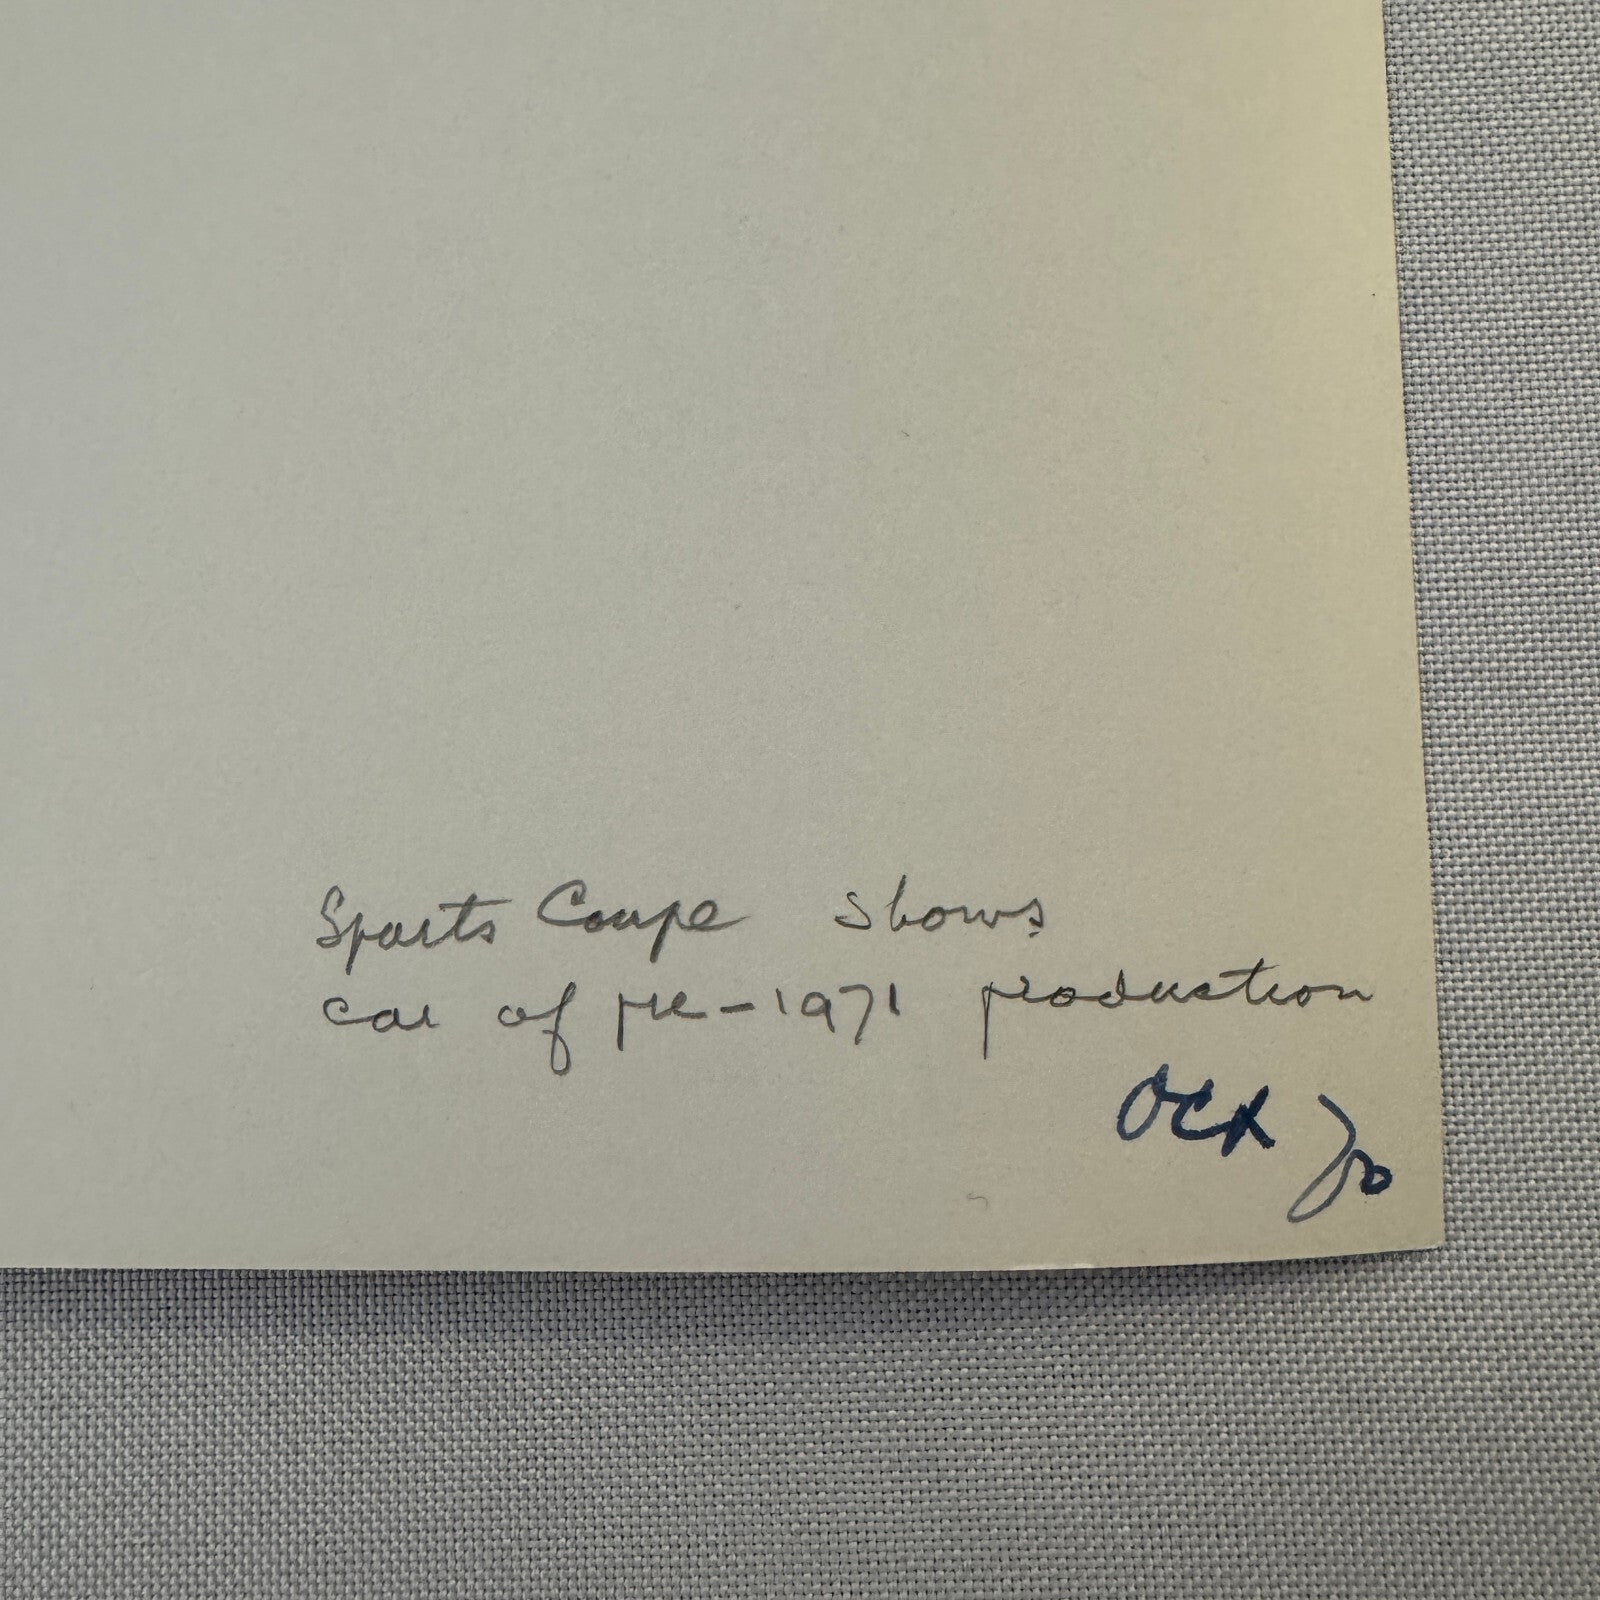 Sports Coupe shows
car of pre-1971 production